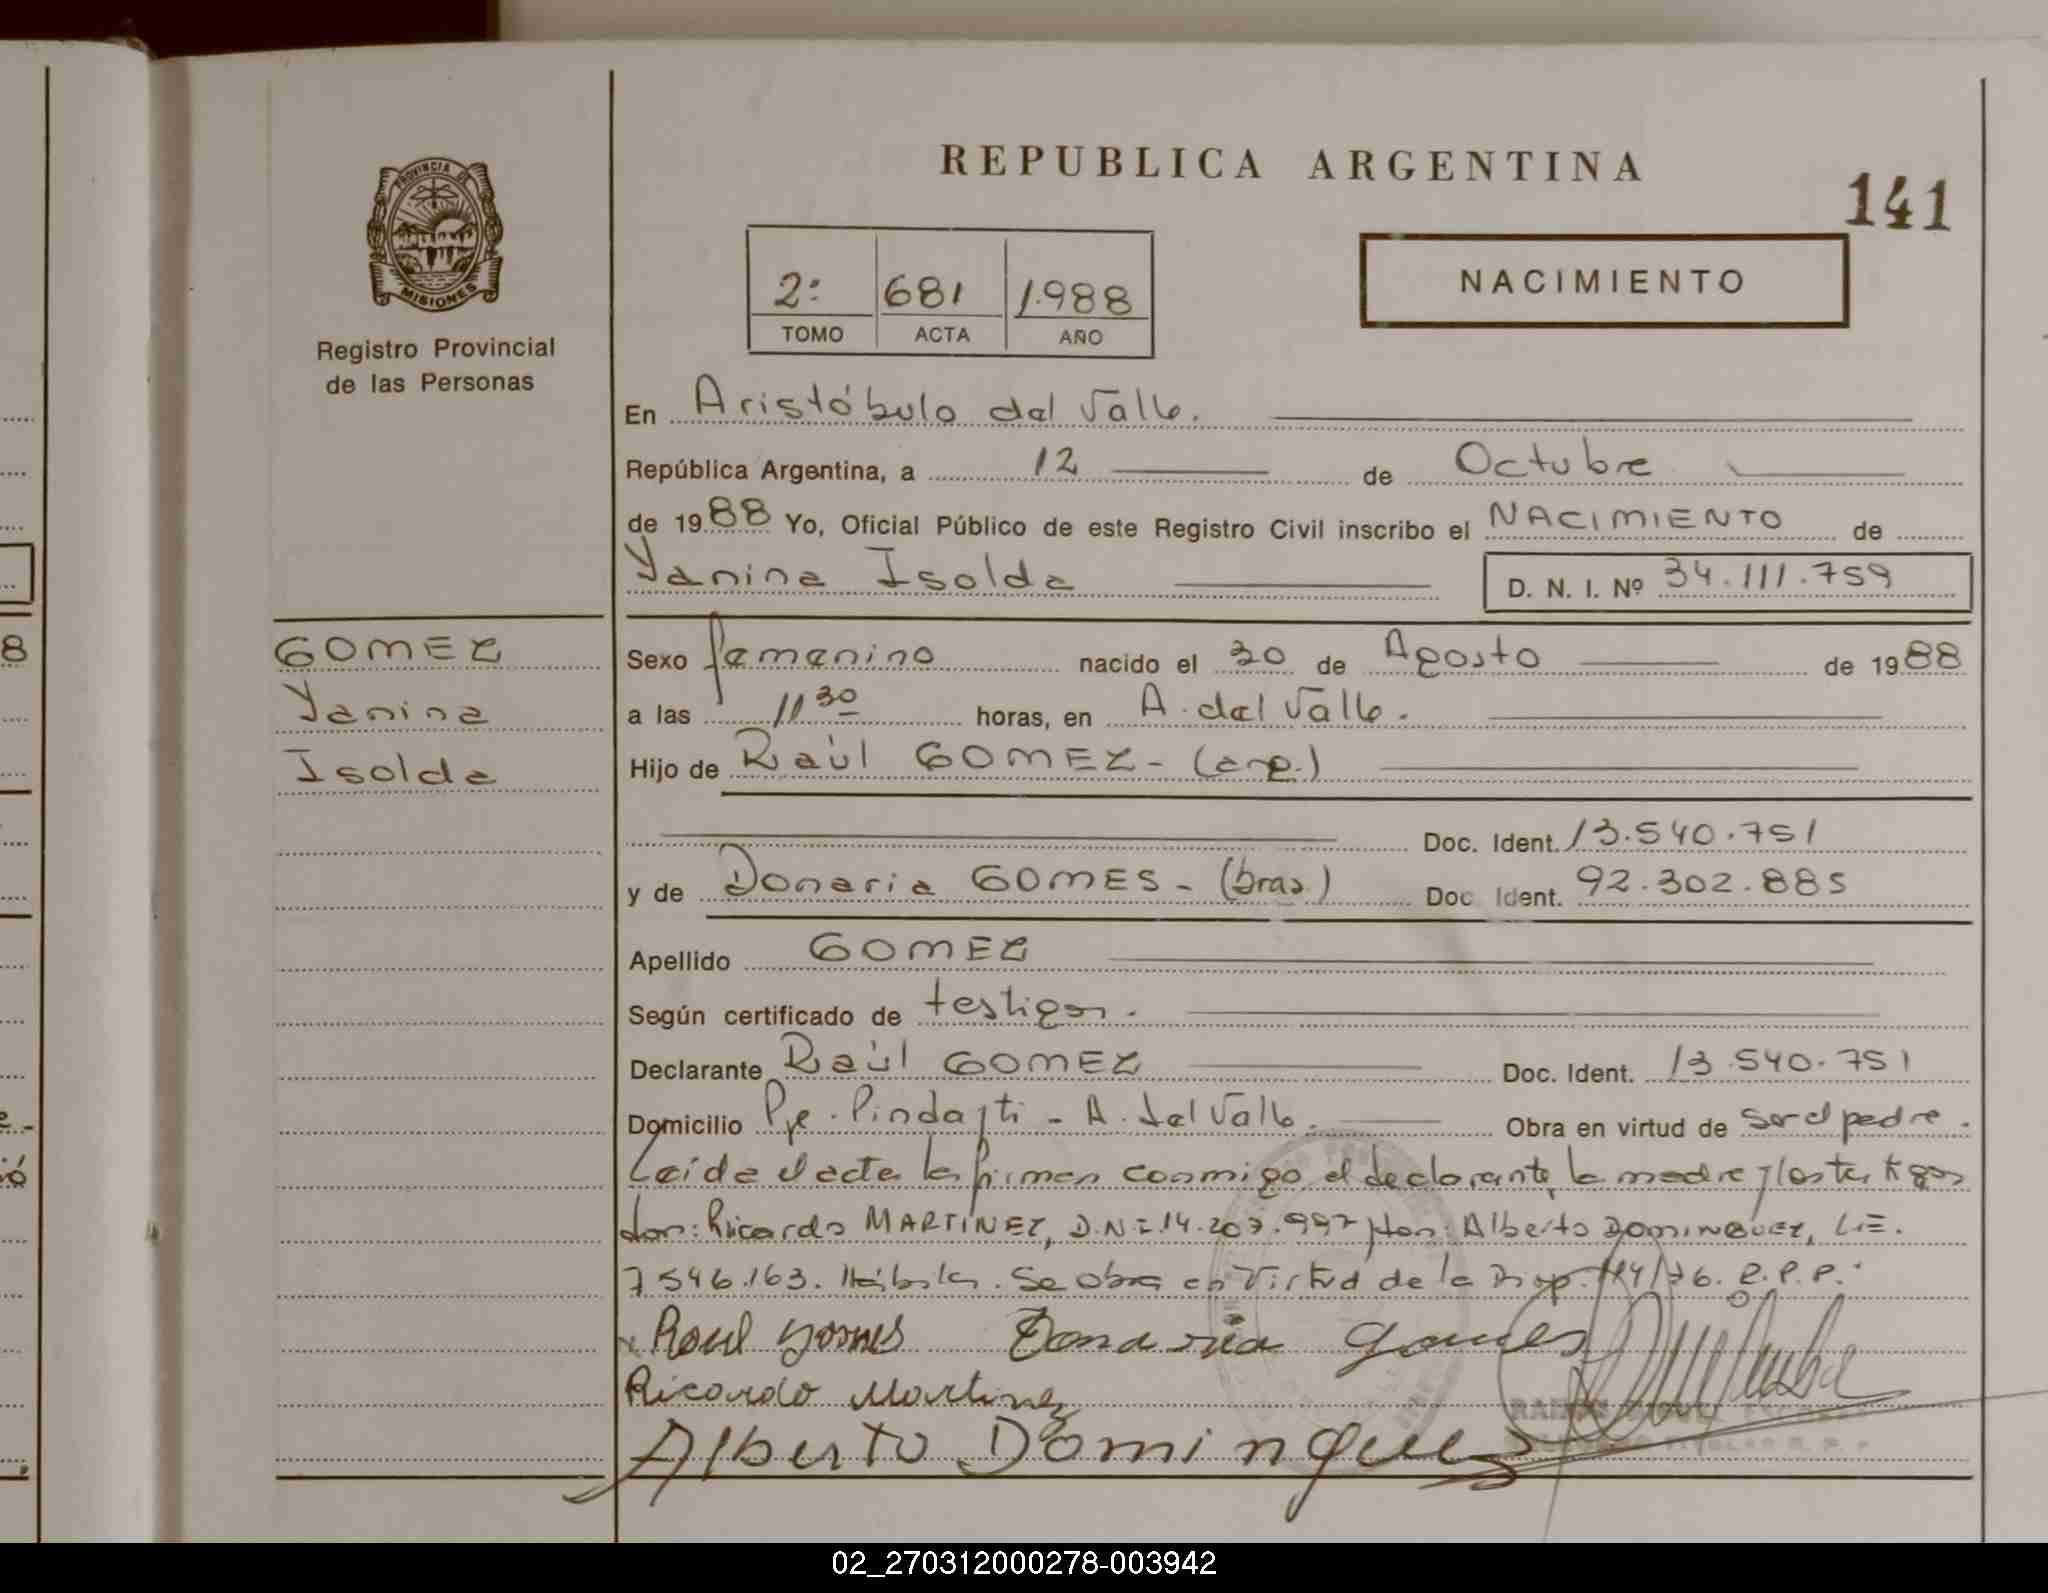 PROVINCIA DE
MISIONES
Registro Provincial
de las Personas
REPUBLICA ARGENTINA
141
2º 681 1.988
TOMO ACTA AÑO
NACIMIENTO
En Aristóbulo del Valle.
República Argentina, a 12 de Octubre
de 1988 Yo, Oficial Público de este Registro Civil inscribo el NACIMIENTO de
Yanina Isolda D. N. I. Nº 34.111.759
GOMEZ
Yanina
Isolda
Sexo femenino nacido el 30 de Agosto de 1988
a las 11 30 horas, en A. del Valle.
Hijo de Raúl GOMEZ - (arg.)
Doc. Ident. 13.540.751
y de Donaria GOMES - (bras.) Doc. Ident. 92.302.885
Apellido GOMEZ
Según certificado de testigos.
Declarante Raúl GOMEZ Doc. Ident. 13.540.751
Domicilio Pje. Pindayti - A. del Valle. Obra en virtud de ser el padre.
Leída el acta la firman conmigo el declarante, la madre y los testigos
don: Ricardo MARTINEZ, D.N.I. 14.207.997 y don: Alberto DOMINGUEZ, L.E.
7.546.163. Hábiles. Se obra en virtud de la Disp. 114/76. R.P.P.
Raul gomes Donaria gomes
Ricardo Martinez
Alberto Dominguez
02_270312000278-003942